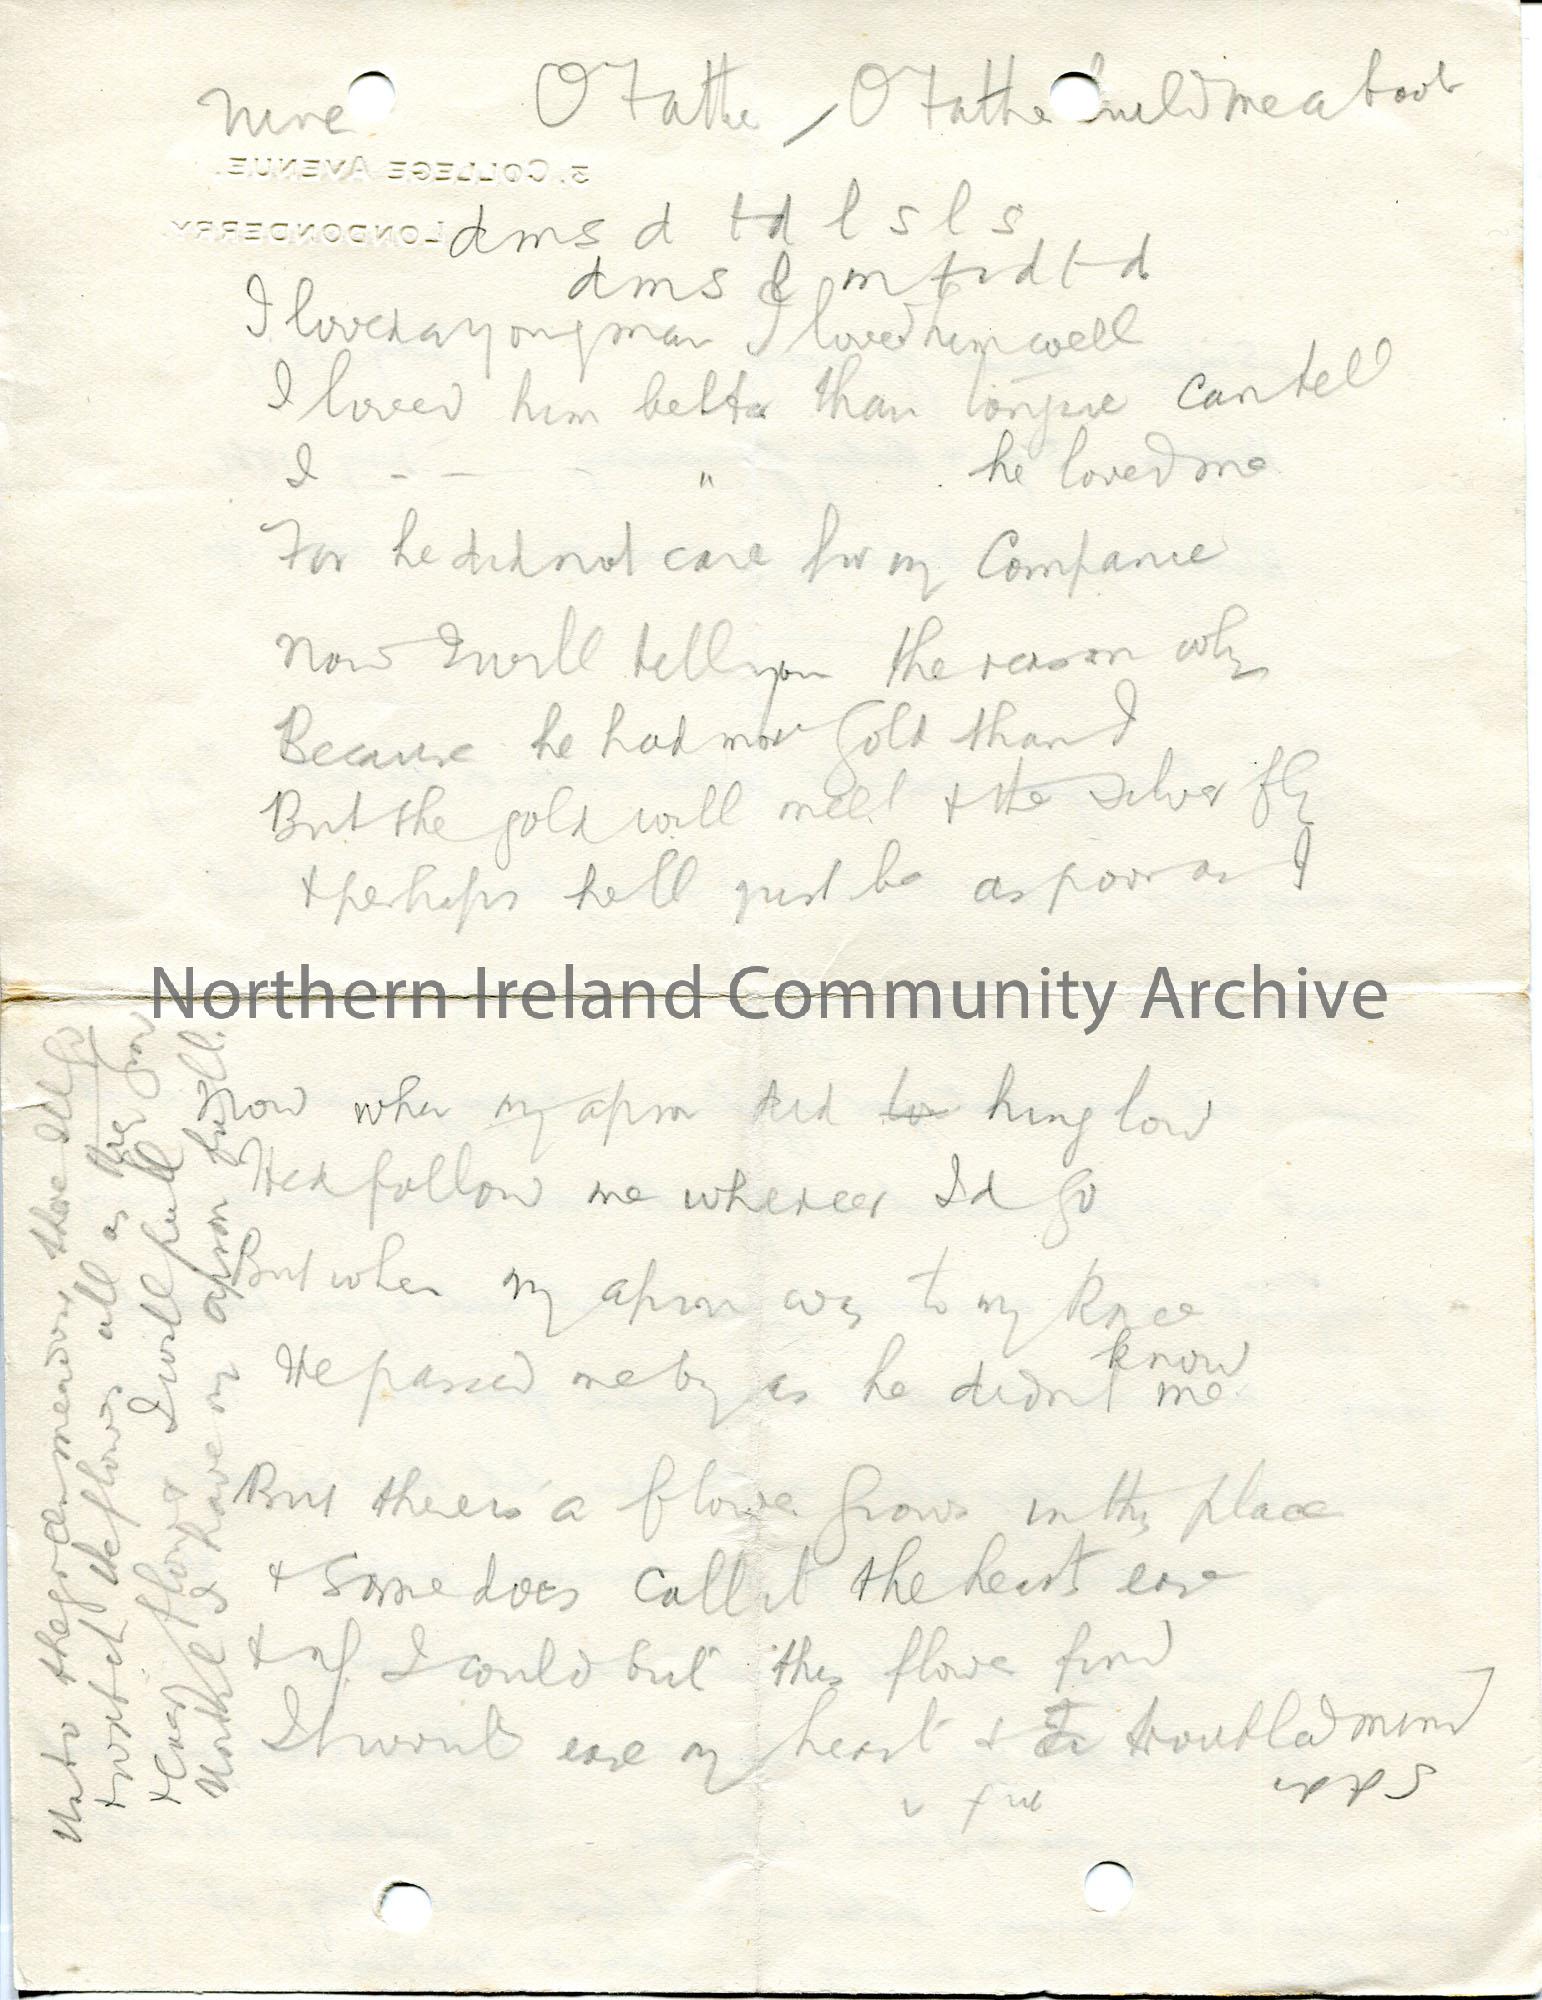 Nure O Father, O Father build me a boat
5. COLLEGE AVENUE.
LONDONDERRY
d m s d t d l s l s
d m s l m f r d t d
I loved a yong man I loved him well
I loved him better than tongue can tell
I - - - " he loved me
For he did not care for my Companie
Now I will tell you the reason why
Because he had more gold than I
But the gold will melt & the silver fly
& perhaps hell just be as poor as I
Northern Ireland Community Archive
Now when my apron did hung low
Hed follow me whereer Id go
But when my apron was to my Knee
He passed me by as he didnt know me
But theres a flower grows in this place
& some does call it the hearts ease
& if I could but this flower find
It would ease my heart & troubled mind
Unto the green meadows there Ill go
& watch the flowers all as they grow
& every flower I will pull
Until I have my apron full.